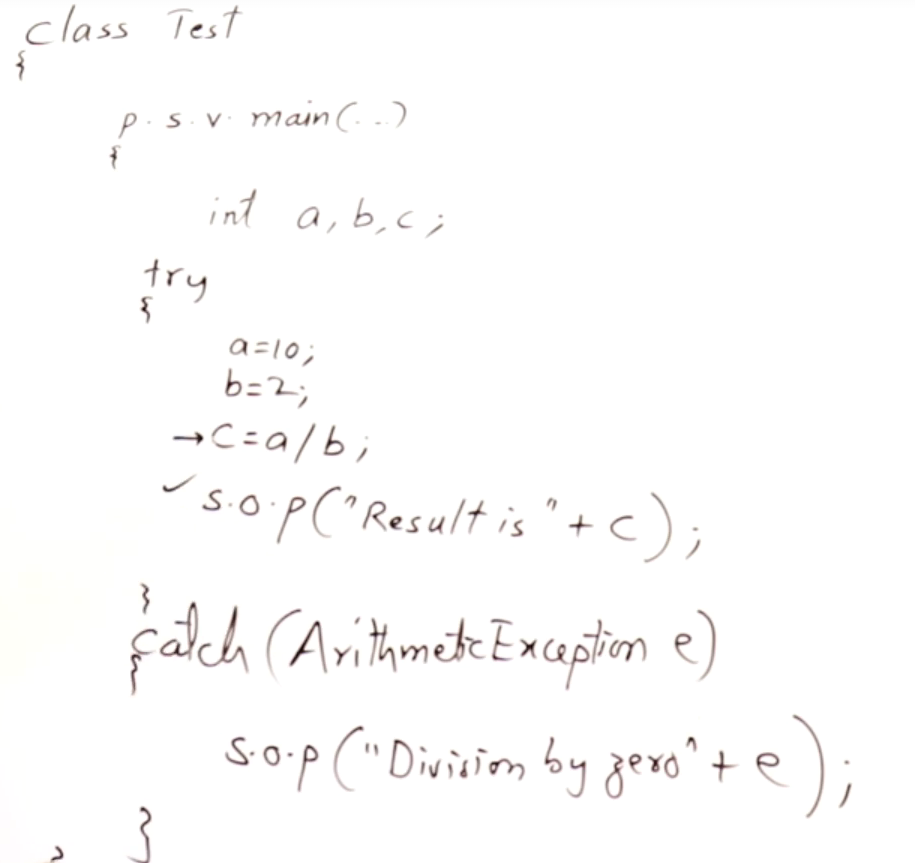 class Test
{
p.s.v. main(...)
{
int a, b, c;
try
{
a=10;
b=2;
→C=a/b;
✓ s.o.p("Result is" + c);
}
catch (ArithmeticException e)
{
s.o.p ("Division by zero" + e);
}